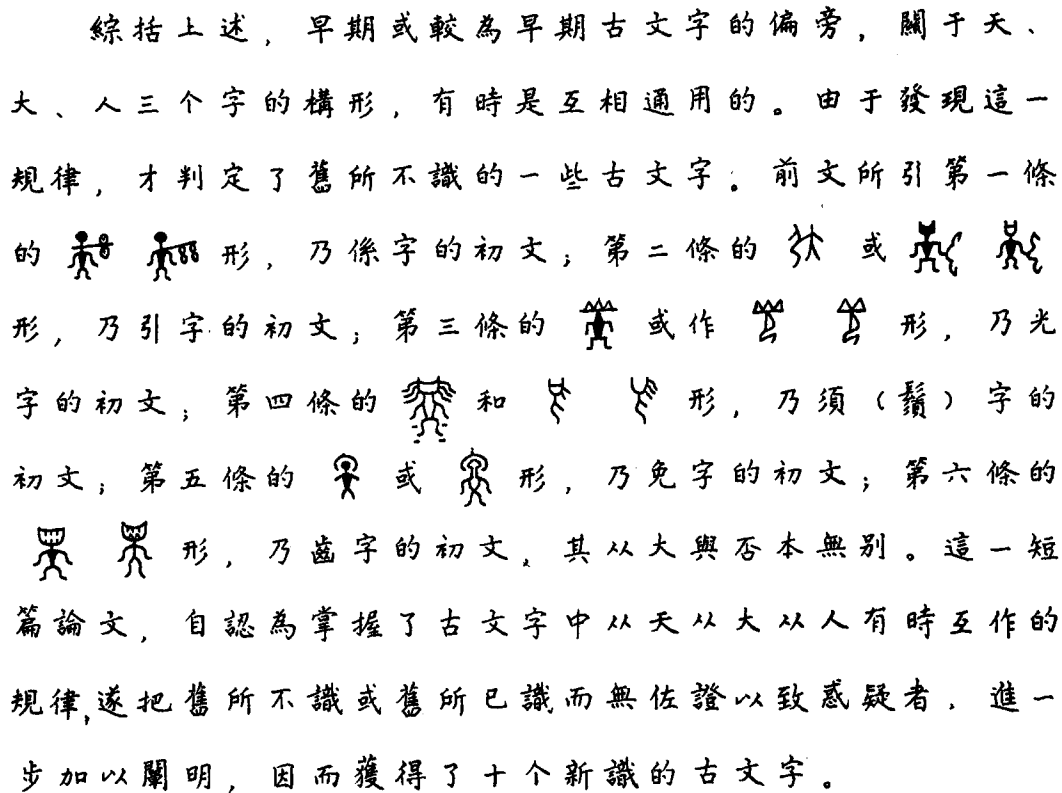 綜括上述，早期或較為早期古文字的偏旁，關于天、
大、人三个字的構形，有時是互相通用的。由于發現這一
規律，才判定了舊所不識的一些古文字。前文所引第一條
的 形，乃係字的初文；第二條的 或
形，乃引字的初文；第三條的 或作 形，乃光
字的初文；第四條的 和 形，乃須（鬚）字的
初文；第五條的 或 形，乃免字的初文；第六條的
形，乃齒字的初文、其从大與否本無别。這一短
篇論文，自認為掌握了古文字中从天从大从人有時互作的
規律，遂把舊所不識或舊所已識而無佐證以致惑疑者，進一
步加以闡明，因而獲得了十个新識的古文字。